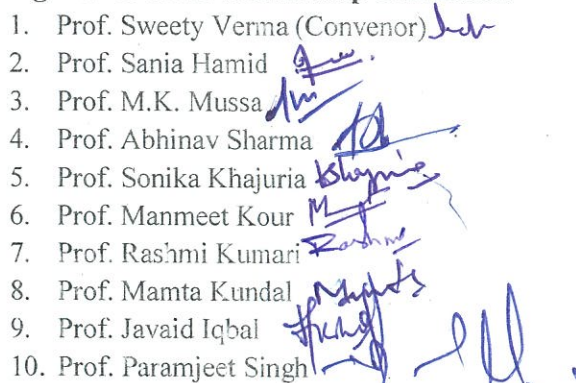 1. Prof. Sweety Verma (Convenor)
2. Prof. Sania Hamid
3. Prof. M.K. Mussa
4. Prof. Abhinav Sharma
5. Prof. Sonika Khajuria
6. Prof. Manmeet Kour
7. Prof. Rashmi Kumari Rashmi
8. Prof. Mamta Kundal
9. Prof. Javaid Iqbal
10. Prof. Paramjeet Singh